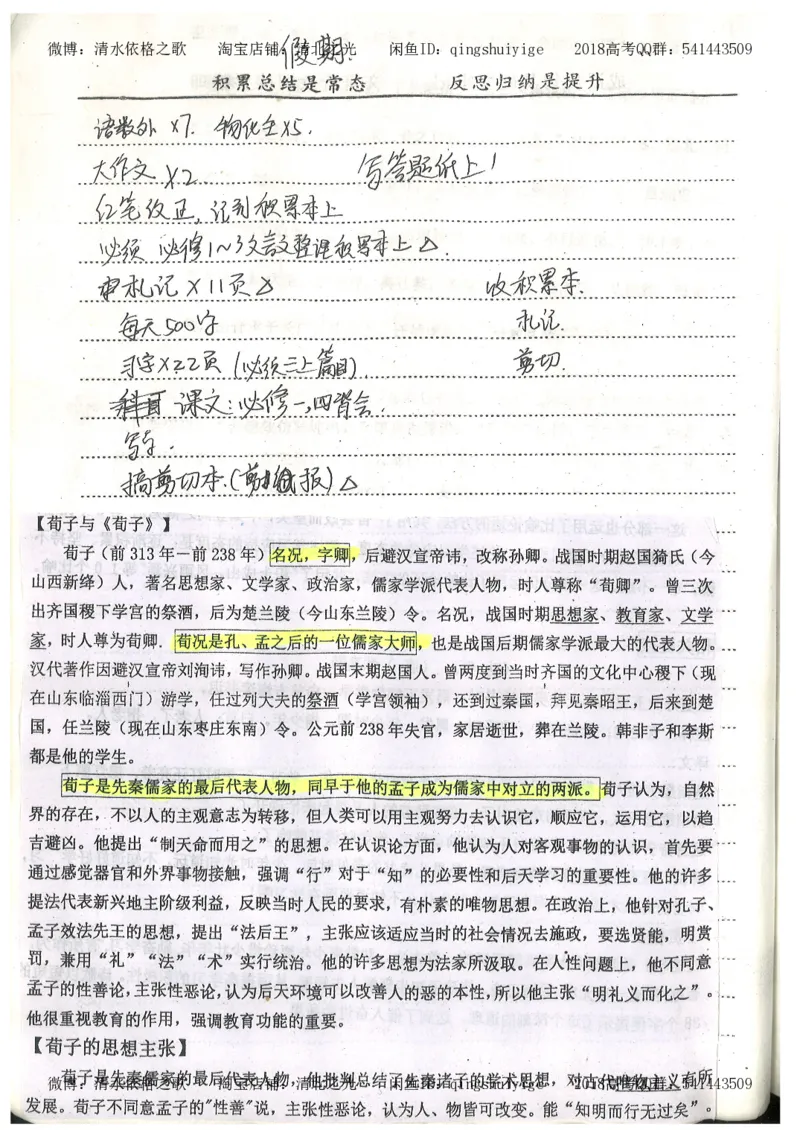 微博：清水依格之歌 淘宝店铺：清北之光 闲鱼ID：qingshuiyige 2018高考QQ群：541443509
假期
积累总结是常态 反思归纳是提升
语数外 x7. 物化生x5.
大作文 x2 写答题纸上!
红笔改正,记到积累本上
必须 必修1~3文言文整理积累本上△.
札记 x11页△ 收积累本.
每天500字 札记.
习字x22页 (必须三上篇目) 剪切.
课文:必修一,四背会.
写字.
搞剪切本.(剪报)△
【荀子与《荀子》】
荀子（前313年－前238年）名况，字卿，后避汉宣帝讳，改称孙卿。战国时期赵国猗氏（今
山西新绛）人，著名思想家、文学家、政治家，儒家学派代表人物，时人尊称“荀卿”。曾三次
出齐国稷下学宫的祭酒，后为楚兰陵（今山东兰陵）令。名况，战国时期思想家、教育家、文学
家，时人尊为荀卿．荀况是孔、孟之后的一位儒家大师，也是战国后期儒家学派最大的代表人物。
汉代著作因避汉宣帝刘洵讳，写作孙卿。战国末期赵国人。曾两度到当时齐国的文化中心稷下（现
在山东临淄西门）游学，任过列大夫的祭酒（学宫领袖），还到过秦国，拜见秦昭王，后来到楚
国，任兰陵（现在山东枣庄东南）令。公元前238年失官，家居逝世，葬在兰陵。韩非子和李斯
都是他的学生。
荀子是先秦儒家的最后代表人物，同早于他的孟子成为儒家中对立的两派。荀子认为，自然
界的存在，不以人的主观意志为转移，但人类可以用主观努力去认识它，顺应它，运用它，以趋
吉避凶。他提出“制天命而用之”的思想。在认识论方面，他认为人对客观事物的认识，首先要
通过感觉器官和外界事物接触，强调“行”对于“知”的必要性和后天学习的重要性。他的许多
提法代表新兴地主阶级利益，反映当时人民的要求，有朴素的唯物思想。在政治上，他针对孔子、
孟子效法先王的思想，提出“法后王”，主张应该适应当时的社会情况去施政，要选贤能，明赏
罚，兼用“礼”“法”“术”实行统治。他的许多思想为法家所汲取。在人性问题上，他不同意
孟子的性善论，主张性恶论，认为后天环境可以改善人的恶的本性，所以他主张“明礼义而化之”。
他很重视教育的作用，强调教育功能的重要。
【荀子的思想主张】
荀子是先秦儒家的最后代表人物，他批判总结了先秦诸子的学术思想，对古代唯物主义有所
微博：清水依格之歌 淘宝店铺：清北之光 闲鱼ID：qingshuiyige 2018高考QQ群：541443509
发展。荀子不同意孟子的"性善"说，主张性恶论，认为人、物皆可改变。能“知明而行无过矣”。